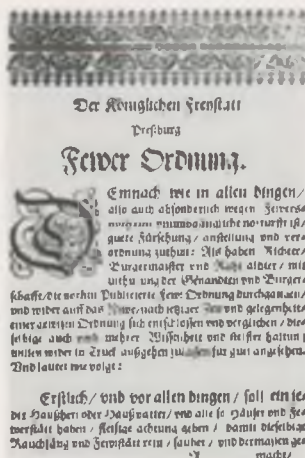 Der Königlichen Freystatt
Preßburg
Fewer Ordnung.
DEmnach wie in allen dingen/
also auch absönderlich wegen Fewers
notturfft ist/
guete Fürsehung / anstellung und ver-
ordnung zuthun: Als haben Richter/
Burgermaister vnd Raht alhier / mit
der Genandten vnd Burger-
schafft/ die vorhin Publicierte Fewr Ordnung durchgangen/
vnd wider auff das Newe/ nach jetziger vnd gelegenheit/
einer gewisen Ordnung sich entschlossen vnd verglichen / die-
selbige auch mehrer Wissenheit vnd steiffer haltung
willen wider in Truck außgehen zulassen für gut angesehen.
Vnd lautet wie volgt:
Erstlich/ vnd vor allen dingen / soll ein je-
der Haußherr oder Haußvatter/ vnd alle so Häuser vnd Fe-
werstätt haben / fleissige achtung geben / damit dieselbige
Rauchfäng vnd Fewrstätt rein / sauber / vnd dermassen ge-
A macht/